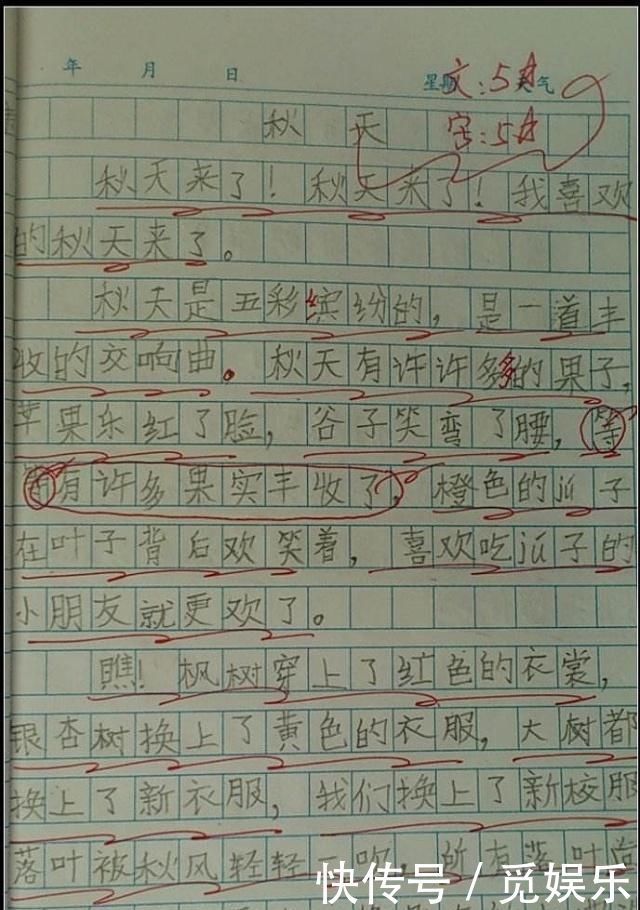 年 月 日 星期 天气
文:5☆
字:5☆
秋天
秋天来了!秋天来了!我喜欢
的秋天来了。
秋天是五彩缤纷的,是一道丰
收的交响曲。秋天有许许多多的果子,
苹果乐红了脸,谷子笑弯了腰,等
等有许多果实丰收了,橙色的jú子
在叶子背后欢笑着,喜欢吃jú子的
小朋友就更欢了。
瞧!枫树穿上了红色的衣裳,
银杏树换上了黄色的衣服,大树都
换上了新衣服,我们换上了新校服
落叶被秋风轻轻一吹,所有落叶
快传号/觅娱乐